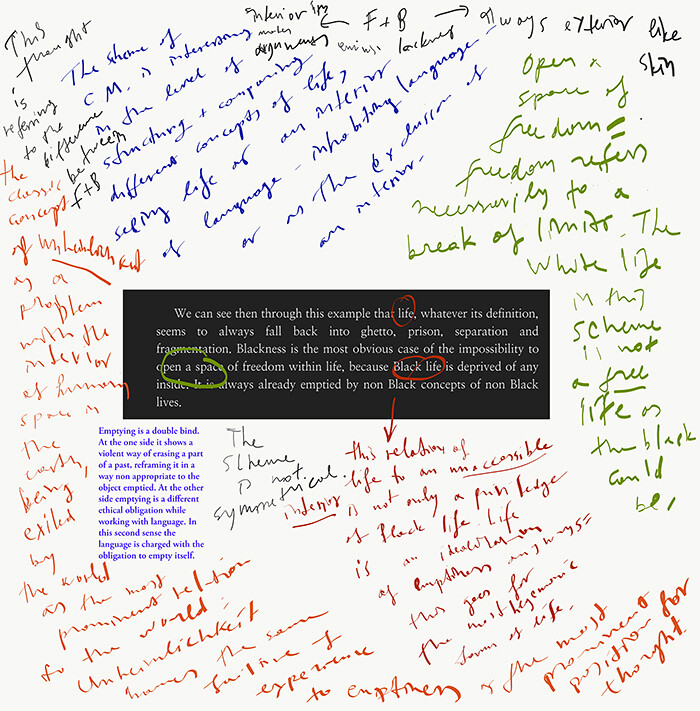 This
thought
is
referring
to the
difference
between
F+B
interior
makes
arguments
← F + B →
always exterior like
skin
The shame of
C.M. is interesting
in the level of
structuring + comparing
different concepts of life,
seeing life as an interior
of language - inhabiting language -
or as the exclusion of
an interior.
Open a
space of
freedom =
freedom refers
necessarily to a
break of limits. The
whole life
in this
scheme
is not
a free
life as
the black
could
be,
We can see then through this example that life, whatever its definition,
seems to always fall back into ghetto, prison, separation and
fragmentation. Blackness is the most obvious case of the impossibility to
open a space of freedom within life, because Black life is deprived of any
inside. It is always already emptied by non Black concepts of non Black
lives.
Emptying is a double bind.
At the one side it shows a
violent way of erasing a part
of a past, reframing it in a
way non appropriate to the
object emptied. At the other
side emptying is a different
ethical obligation while
working with language. In
this second sense the
language is charged with the
obligation to empty itself.
The
scheme
is not
symmetrical.
this relation of
life to an unaccessible
interior is not only a priviledge
of Black life. Life
is an
of emptiness anyways =
this goes for
the most hegemonic
forms of life.
the
classic
concept
of Unheimlichkeit
as a
problem
with the
interior
of human
space in
the
earth,
being
exiled
by
the world
as the most
prominent relation
to the world.
Unheimlichkeit
the same
failure of
experience
to emptiness as the most
prominent
position for
thought